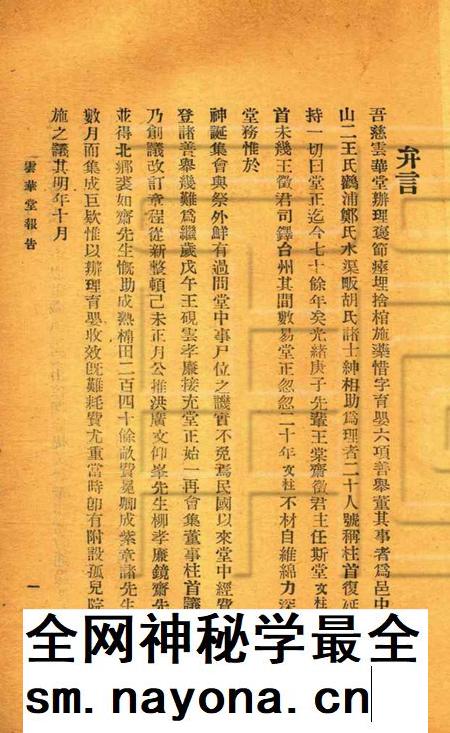 弁言
吾慈雲華堂辦理褒節瘞埋捨棺施藥惜字育嬰六項善舉董其事者為邑中
山二王氏鸛浦鄭氏水渠畈胡氏諸士紳相助為理者二十人號稱柱首復延
持一切曰堂正迄今七十餘年矣光緒庚子先輩王棠齋徵君主任斯堂文柱
首未幾王徵君司鐸台州其間數易堂正忽忽二十年文柱不材自維綿力深
堂務惟於
神誕集會與祭外鮮有過問堂中事尸位之譏實不免焉民國以來堂中經費
登諸善舉幾難為繼歲戊午王硯雲孝廉接充堂正始一再會集董事柱首議
乃創議改訂章程從新整頓己未正月公推洪廣文仰峯先生柳孝廉鏡齋先
並得北鄉裘如齋先生慨助成熟棉田二百四十餘畝費冕卿成紫章諸先生
數月而集成巨欵惟以辦理育嬰收效旣難耗費尤重當時卽有附設孤兒院
施之議其明年十月
雲華堂報告
一
全网神秘学最全
sm.nayona.cn